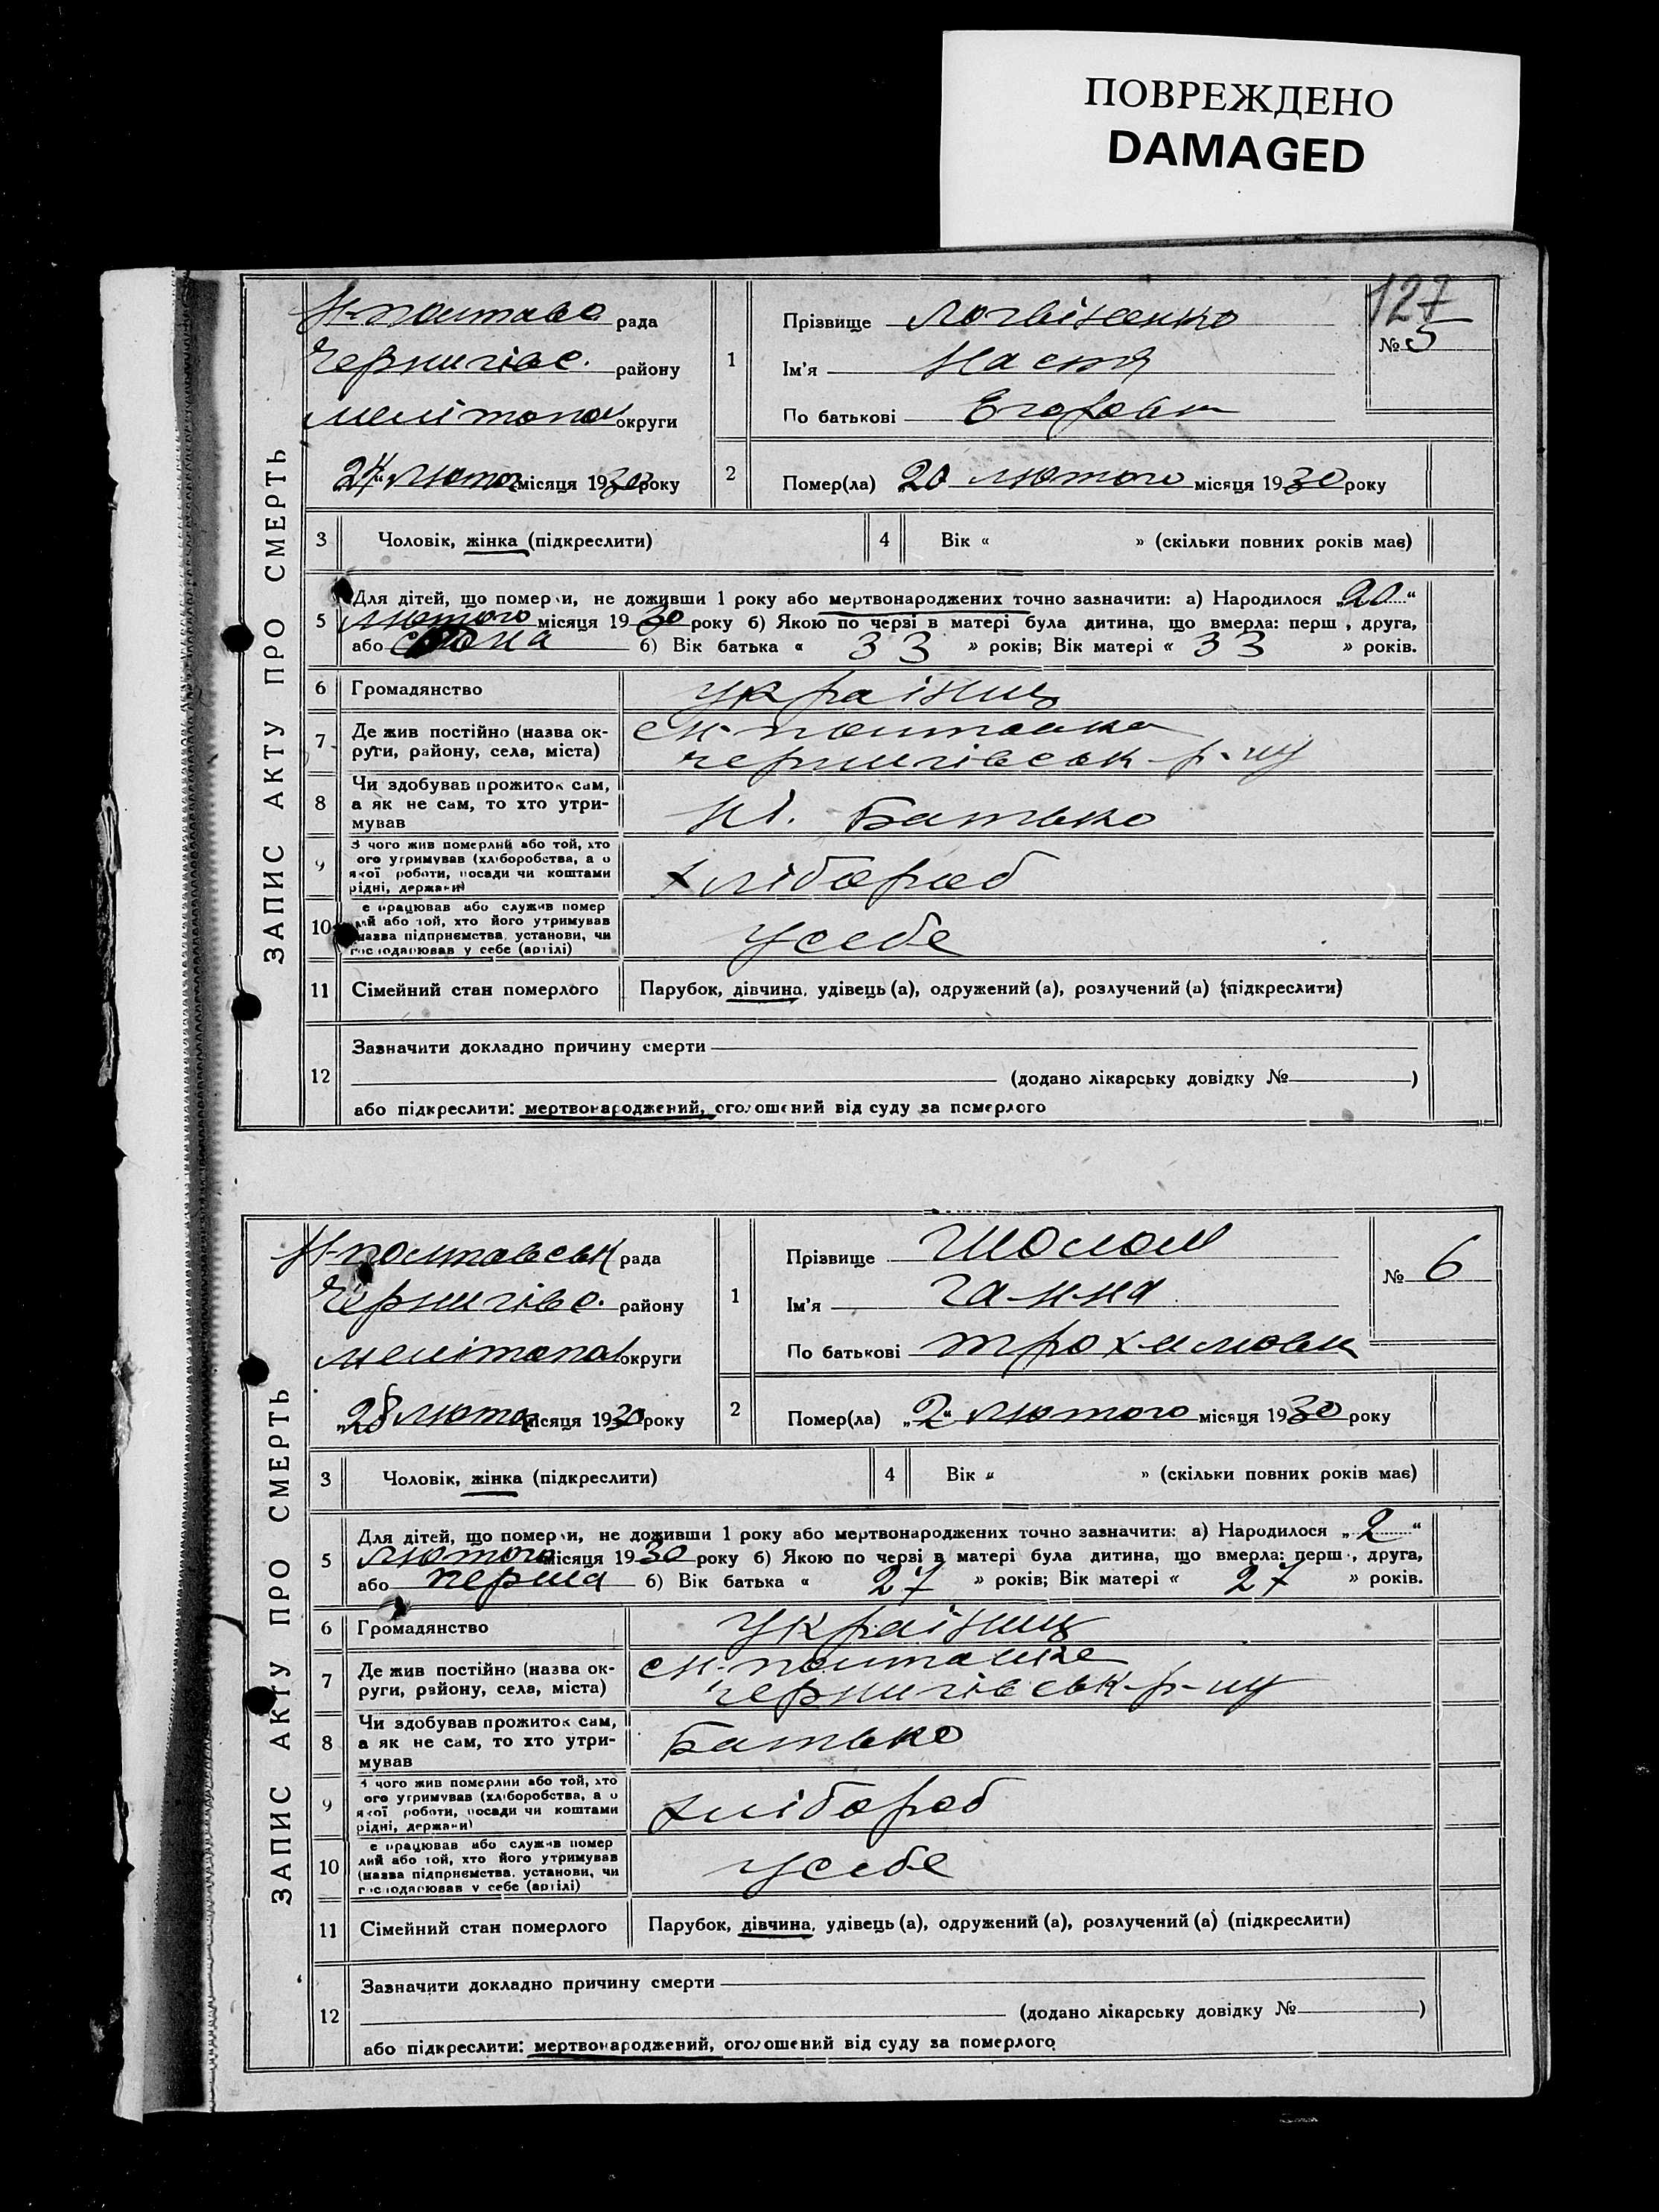 ПОВРЕЖДЕНО
DAMAGED
127
ЗАПИС АКТУ ПРО СМЕРТЬ
Н-полтавс рада
Чернигівс. району
мелітопол округи
24 Лютог місяця 1930 року
1
Прізвище Логвіненко
Ім'я Настя
По батькові Егоровн
№ 5
2
Помер(ла) „20 лютого місяця 1930 року
3 Чоловік, жінка (підкреслити)
4 Вік « » (скільки повних років має)
5 Для дітей, що померли, не доживши 1 року або мертвонароджених точно зазначити: а) Народилося „20“
лютого місяця 1930 року б) Якою по черзі в матері була дитина, що вмерла: перш , друга,
або 6) Вік батька « 33 » років; Вік матері « 33 » років.
6 Громадянство українц
7 Де жив постійно (назва ок-
руги, району, села, міста)
с Н-полтавка
чернигівськ р-ну
8 Чи здобував прожиток сам,
а як не сам, то хто утри-
мував
Ні. Батько
9 З чого жив померлий або той, хто
ого утримував (хліборобства, а о
якої роботи, посади чи коштами
рідні, держави)
хлібороб
10 е працював або служив помер
лий або той, хто його утримував
назва підприємства, установи, чи
господарював у себе (артілі)
усебе
11 Сімейний стан померлого Парубок, дівчина, удівець (а), одружений (а), розлучений (а) (підкреслити)
12 Зазначити докладно причину смерти
(додано лікарську довідку № )
або підкреслити: мертвонароджений, оголошений від суду за померлого
ЗАПИС АКТУ ПРО СМЕРТЬ
Н-полтавськ рада
Чернигівс. району
мелітопол округи
„28 лютог місяця 1930 року
1
Прізвище Шолом
Ім'я Ганна
По батькові Трохимовн
№ 6
2
Помер(ла) „2“ лютого місяця 1930 року
3 Чоловік, жінка (підкреслити)
4 Вік « » (скільки повних років має)
5 Для дітей, що померли, не доживши 1 року або мертвонароджених точно зазначити: а) Народилося „2“
лютого місяця 1930 року б) Якою по черзі в матері була дитина, що вмерла: перш , друга,
або перша 6) Вік батька « 27 » років; Вік матері « 27 » років.
6 Громадянство українц
7 Де жив постійно (назва ок-
руги, району, села, міста)
с Н-полтавке
чернигівськ р-ну
8 Чи здобував прожиток сам,
а як не сам, то хто утри-
мував
Батько
9 З чого жив померлий або той, хто
ого утримував (хліборобства, а о
якої роботи, посади чи коштами
рідні, держави)
хлібороб
10 е працював або служив помер
лий або той, хто його утримував
(назва підприємства, установи, чи
господарював у себе (артілі)
усебе
11 Сімейний стан померлого Парубок, дівчина, удівець (а), одружений (а), розлучений (а) (підкреслити)
12 Зазначити докладно причину смерти
(додано лікарську довідку № )
або підкреслити: мертвонароджений, оголошений від суду за померлого